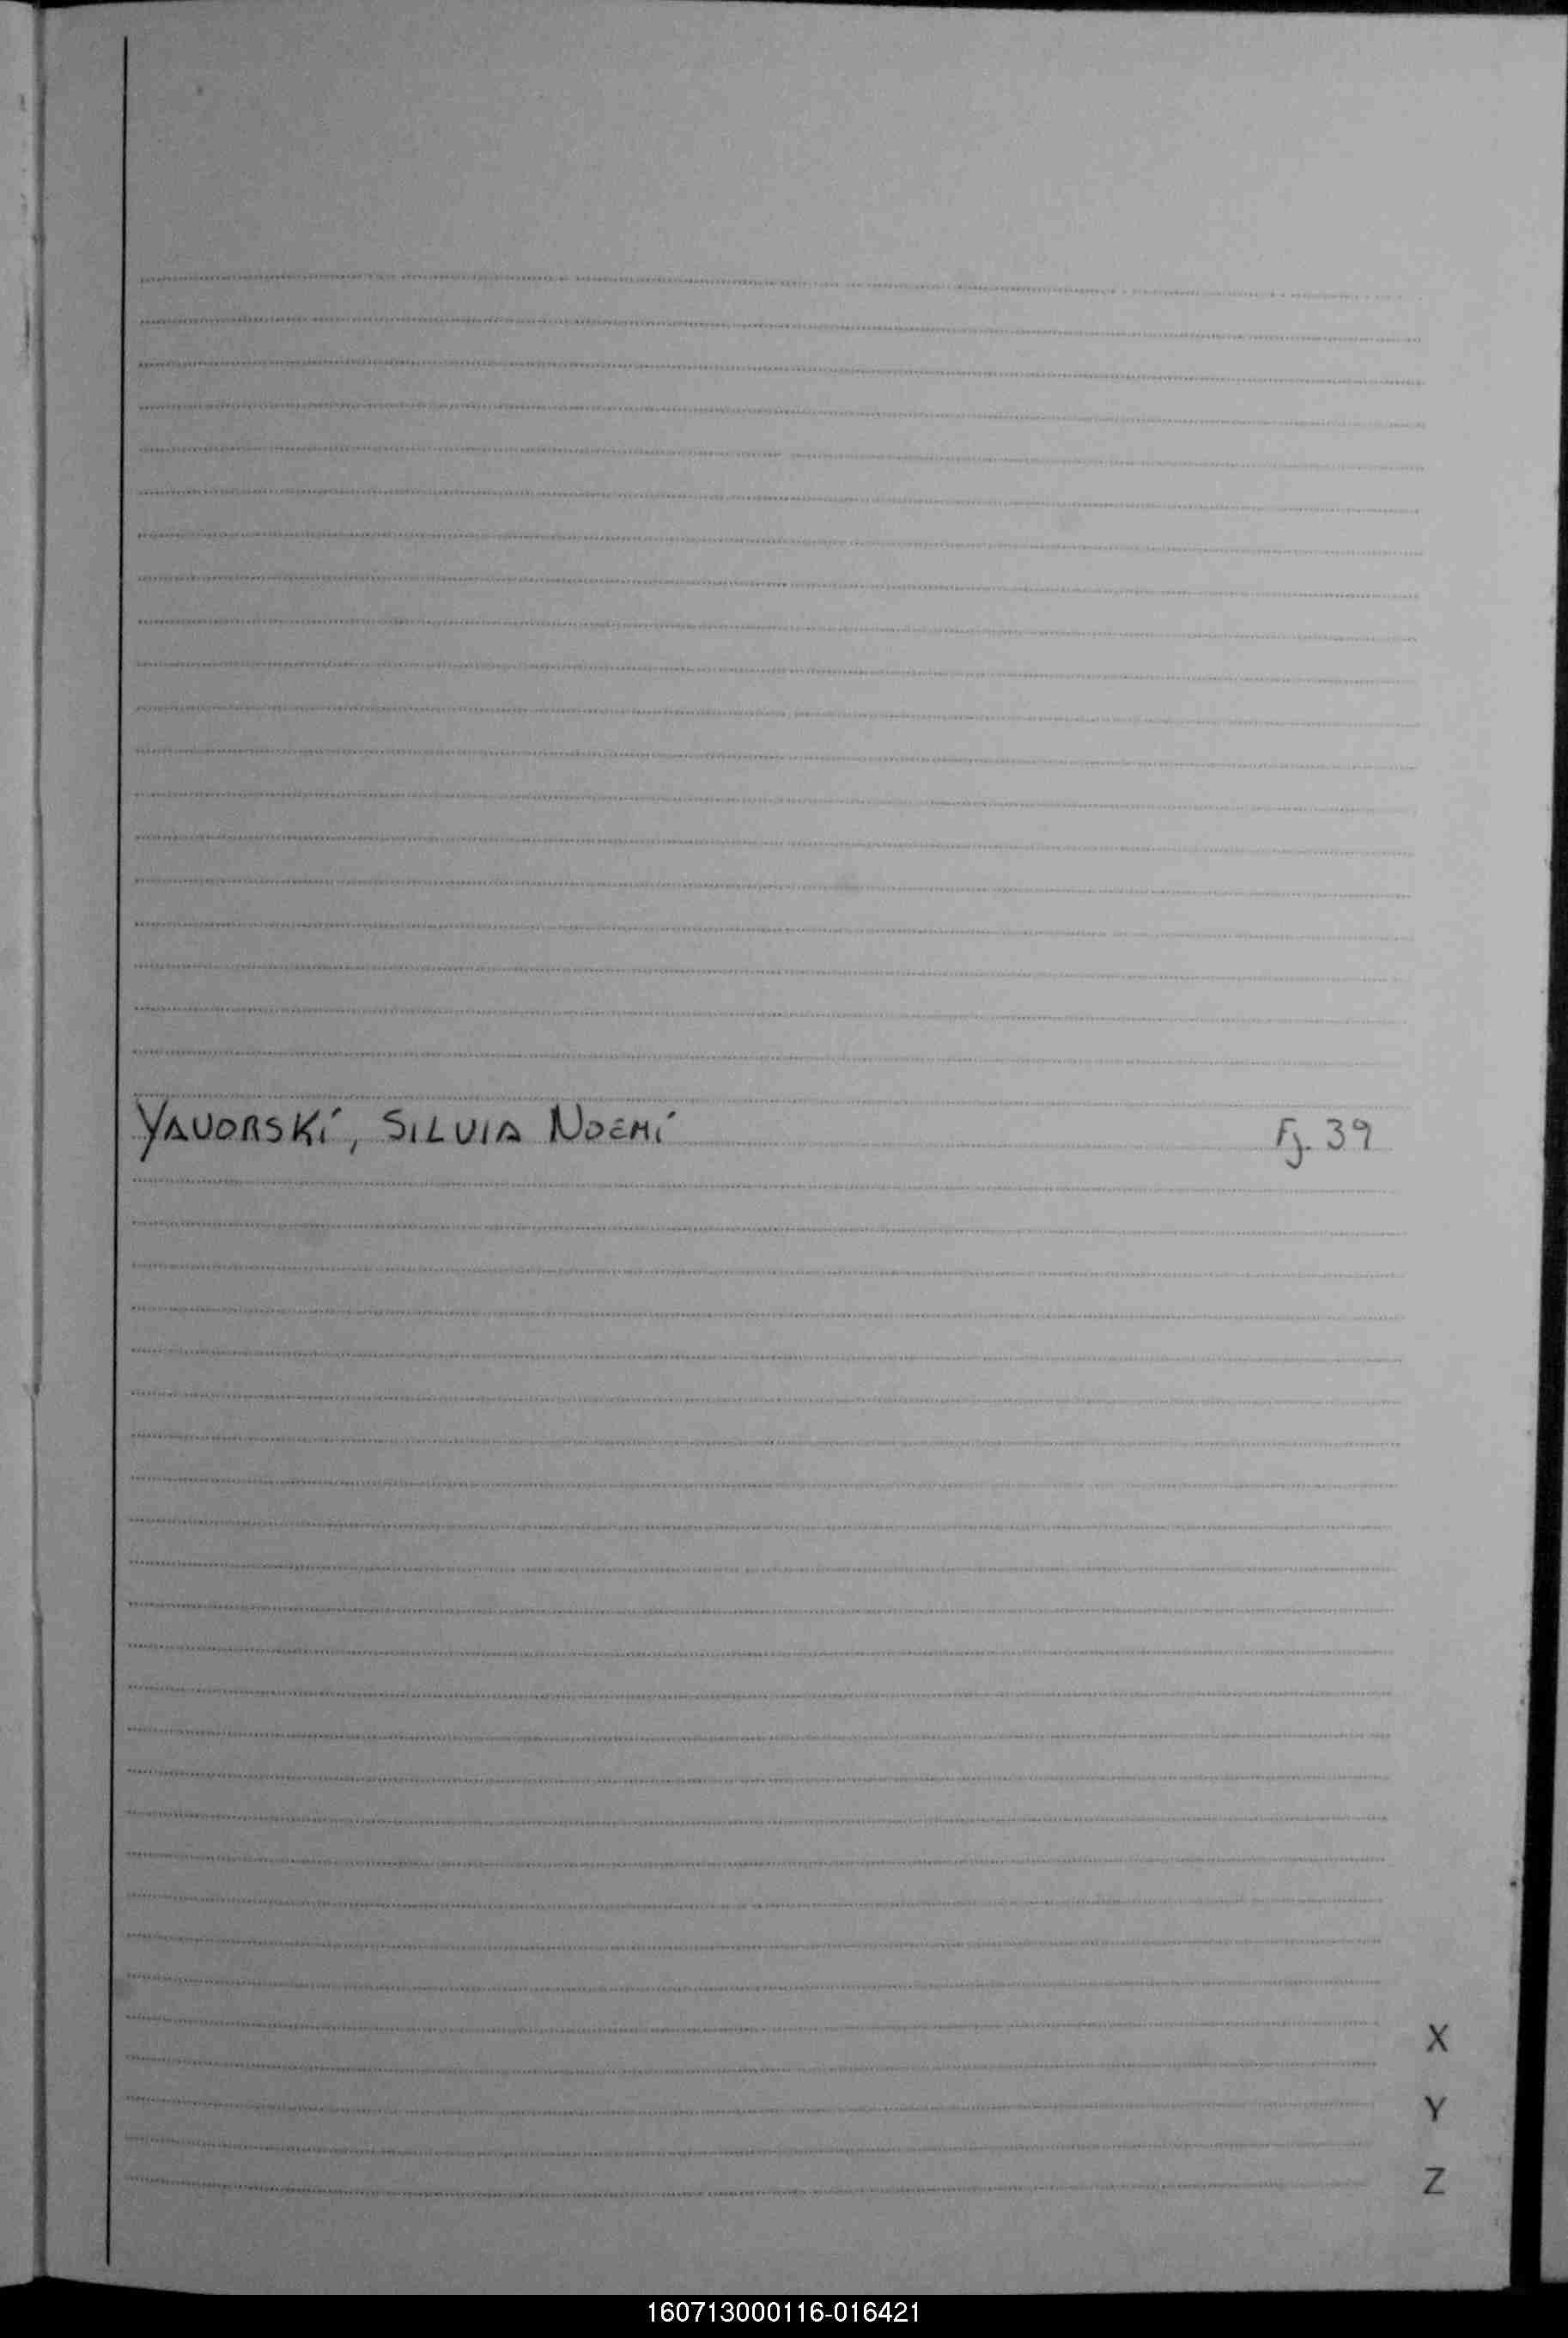 YAVORSKÍ, SILVIA NOEMÍ Fj. 39
X
Y
Z
160713000116-016421